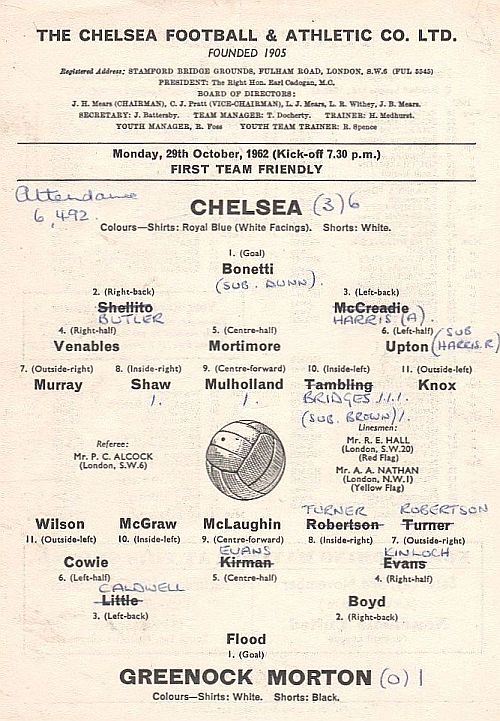 THE CHELSEA FOOTBALL & ATHLETIC CO. LTD.
FOUNDED 1905
Registered Address: STAMFORD BRIDGE GROUNDS, FULHAM ROAD, LONDON, S.W.6 (FUL 5545)
PRESIDENT: The Right Hon. Earl Cadogan, M.C.
BOARD OF DIRECTORS:
J. H. Mears (CHAIRMAN), C. J. Pratt (VICE-CHAIRMAN), L. J. Mears, L. R. Withey, J. B. Mears.
SECRETARY: J. Battersby. TEAM MANAGER: T. Docherty. TRAINER: H. Medhurst.
YOUTH MANAGER, R. Foss YOUTH TEAM TRAINER: R. Spence
Monday, 29th October, 1962 (Kick-off 7.30 p.m.)
FIRST TEAM FRIENDLY
Attendance
6,492.
CHELSEA (3) 6
Colours—Shirts: Royal Blue (White Facings). Shorts: White.
1. (Goal)
Bonetti
(SUB. DUNN).
2. (Right-back) 3. (Left-back)
Shellito McCreadie
BUTLER HARRIS (A)
4. (Right-half) 5. (Centre-half) 6. (Left-half)
Venables Mortimore Upton (SUB HARRIS.R)
7. (Outside-right) 8. (Inside-right) 9. (Centre-forward) 10. (Inside-left) 11. (Outside-left)
Murray Shaw Mulholland Tambling Knox
1. 1. BRIDGES 1.1.1.
(SUB. BROWN) 1.
Referee:
Mr. P. C. ALCOCK
(London, S.W.6)
Linesmen:
Mr. R. E. HALL
(London, S.W.20)
(Red Flag)
Mr. A. A. NATHAN
(London, N.W.1)
(Yellow Flag)
TURNER ROBERTSON
Wilson McGraw McLaughin Robertson Turner
11. (Outside-left) 10. (Inside-left) 9. (Centre-forward) 8. (Inside-right) 7. (Outside-right)
EVANS KINLOCH
Cowie Kirman Evans
6. (Left-half) 5. (Centre-half) 4. (Right-half)
CALDWELL
Little Boyd
3. (Left-back) 2. (Right-back)
Flood
1. (Goal)
GREENOCK MORTON (0) 1
Colours—Shirts: White. Shorts: Black.